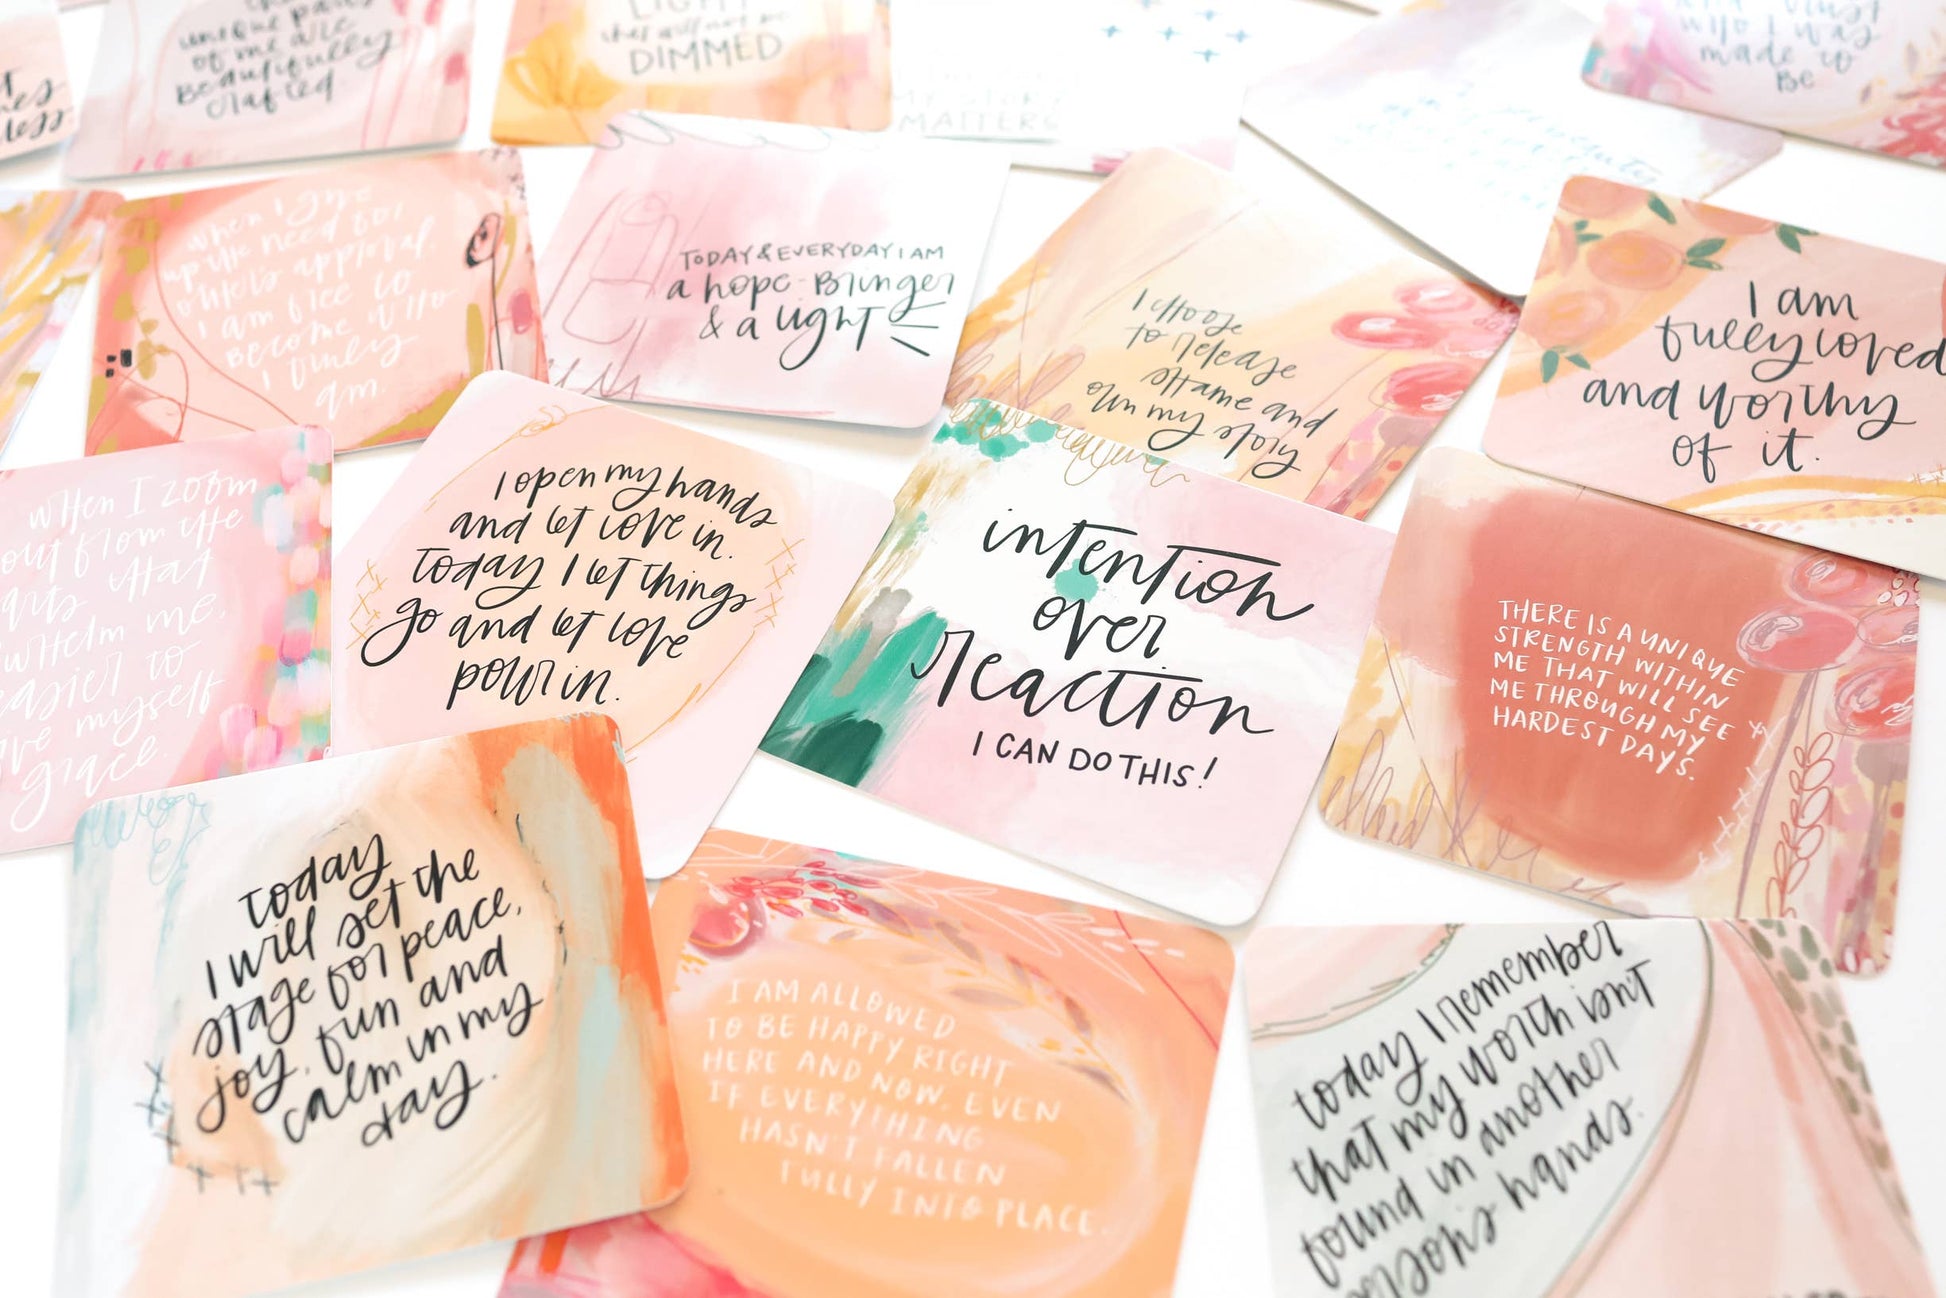 unique parts
of me are
beautifully
crafted.
LIGHT
that will not be
DIMMED
MY STORY
MATTERS
who I was
made to
be
when I give
up the need for
other's approval
I am free to
become who
I truly
am.
TODAY & EVERYDAY I AM
a hope-bringer
& a light
I choose
to release
shame and
own my story
I am
fully loved
and worthy
of it.
when I zoom
out from the
that
me,
easier to
myself
grace.
I open my hands
and let love in.
today I let things
go and let love
pour in.
intention
over
reaction
I CAN DO THIS!
THERE IS A UNIQUE
STRENGTH WITHIN
ME THAT WILL SEE
ME THROUGH MY
HARDEST DAYS.
today
I will set the
stage for peace,
joy, fun and
calm in my
day.
I AM ALLOWED
TO BE HAPPY RIGHT
HERE AND NOW, EVEN
IF EVERYTHING
HASN'T FALLEN
FULLY INTO PLACE.
today I remember
that my worth isn't
found in another
person's hands.